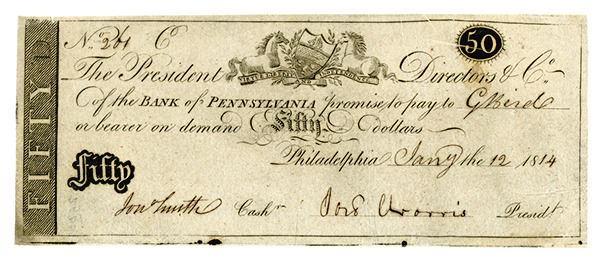 FIFTY D
No. 261 C
50
The President
VIRTUE LIBERTY AND INDEPENDENCE
Directors & Co.
of the BANK of PENNSYLVANIA promise to pay to G Bird
or bearer on demand Fifty dollars
Philadelphia Jany the 12 1814
Fifty
Jon Smith Cashr Jos Morris Presidt